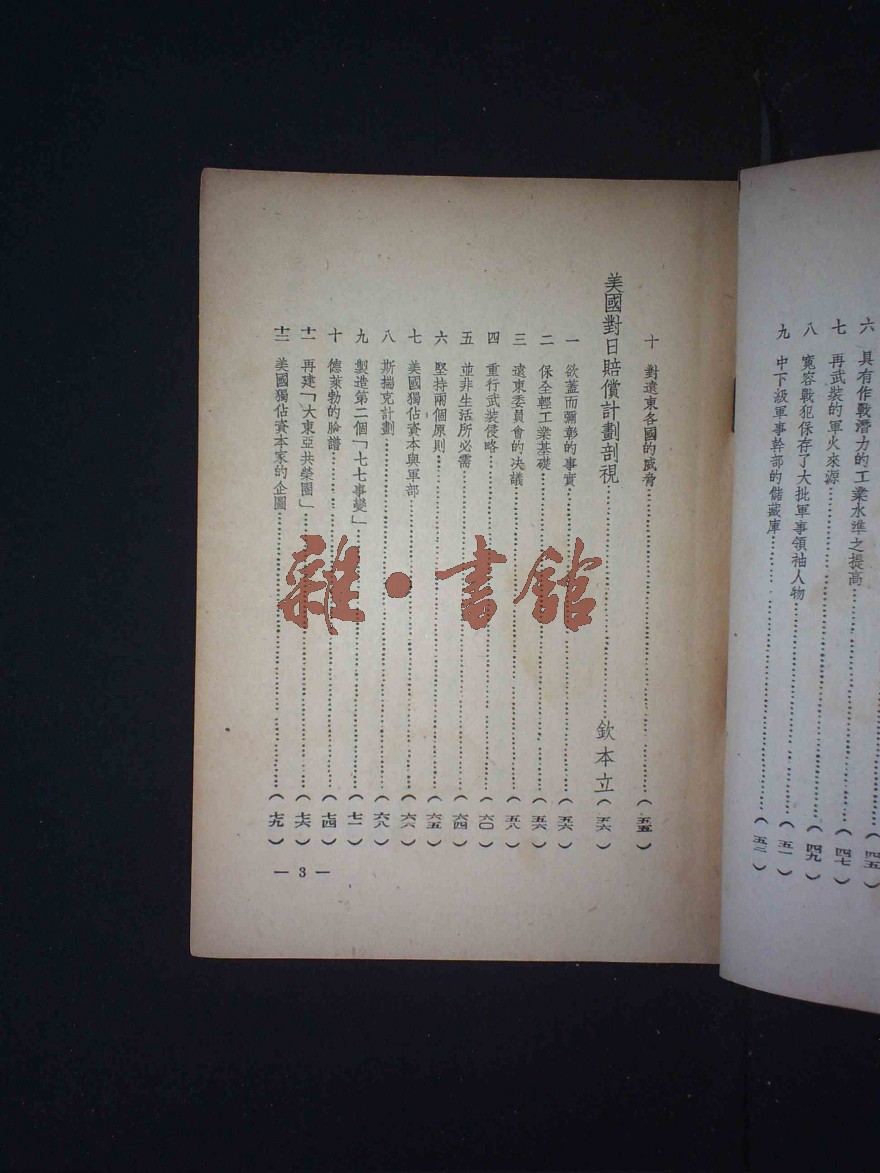 六　具有作戰潛力的工業水準之提高……（四五
七　再武裝的軍火來源……（四七）
八　寬容戰犯保存了大批軍事領袖人物……（四九）
九　中下級軍事幹部的儲藏庫……（五一）
（五二）
十　對遠東各國的威脅……（五五）
美國對日賠償計劃剖視……欽本立（五六）
一　欲蓋而彌彰的事實……（五六）
二　保全輕工業基礎……（五六）
三　遠東委員會的決議……（五八）
四　重行武裝侵略……（六〇）
五　並非生活所必需……（六四）
六　堅持兩個原則……（六五）
七　美國獨佔資本與軍部……（六六）
八　斯揣克計劃……（六八）
九　製造第二個「七七事變」……（七一）
十　德萊勃的臉譜……（七四）
十一　再建「大東亞共榮圈」……（七六）
十二　美國獨佔資本家的企圖……（七九）
— 3 —
雜·書館